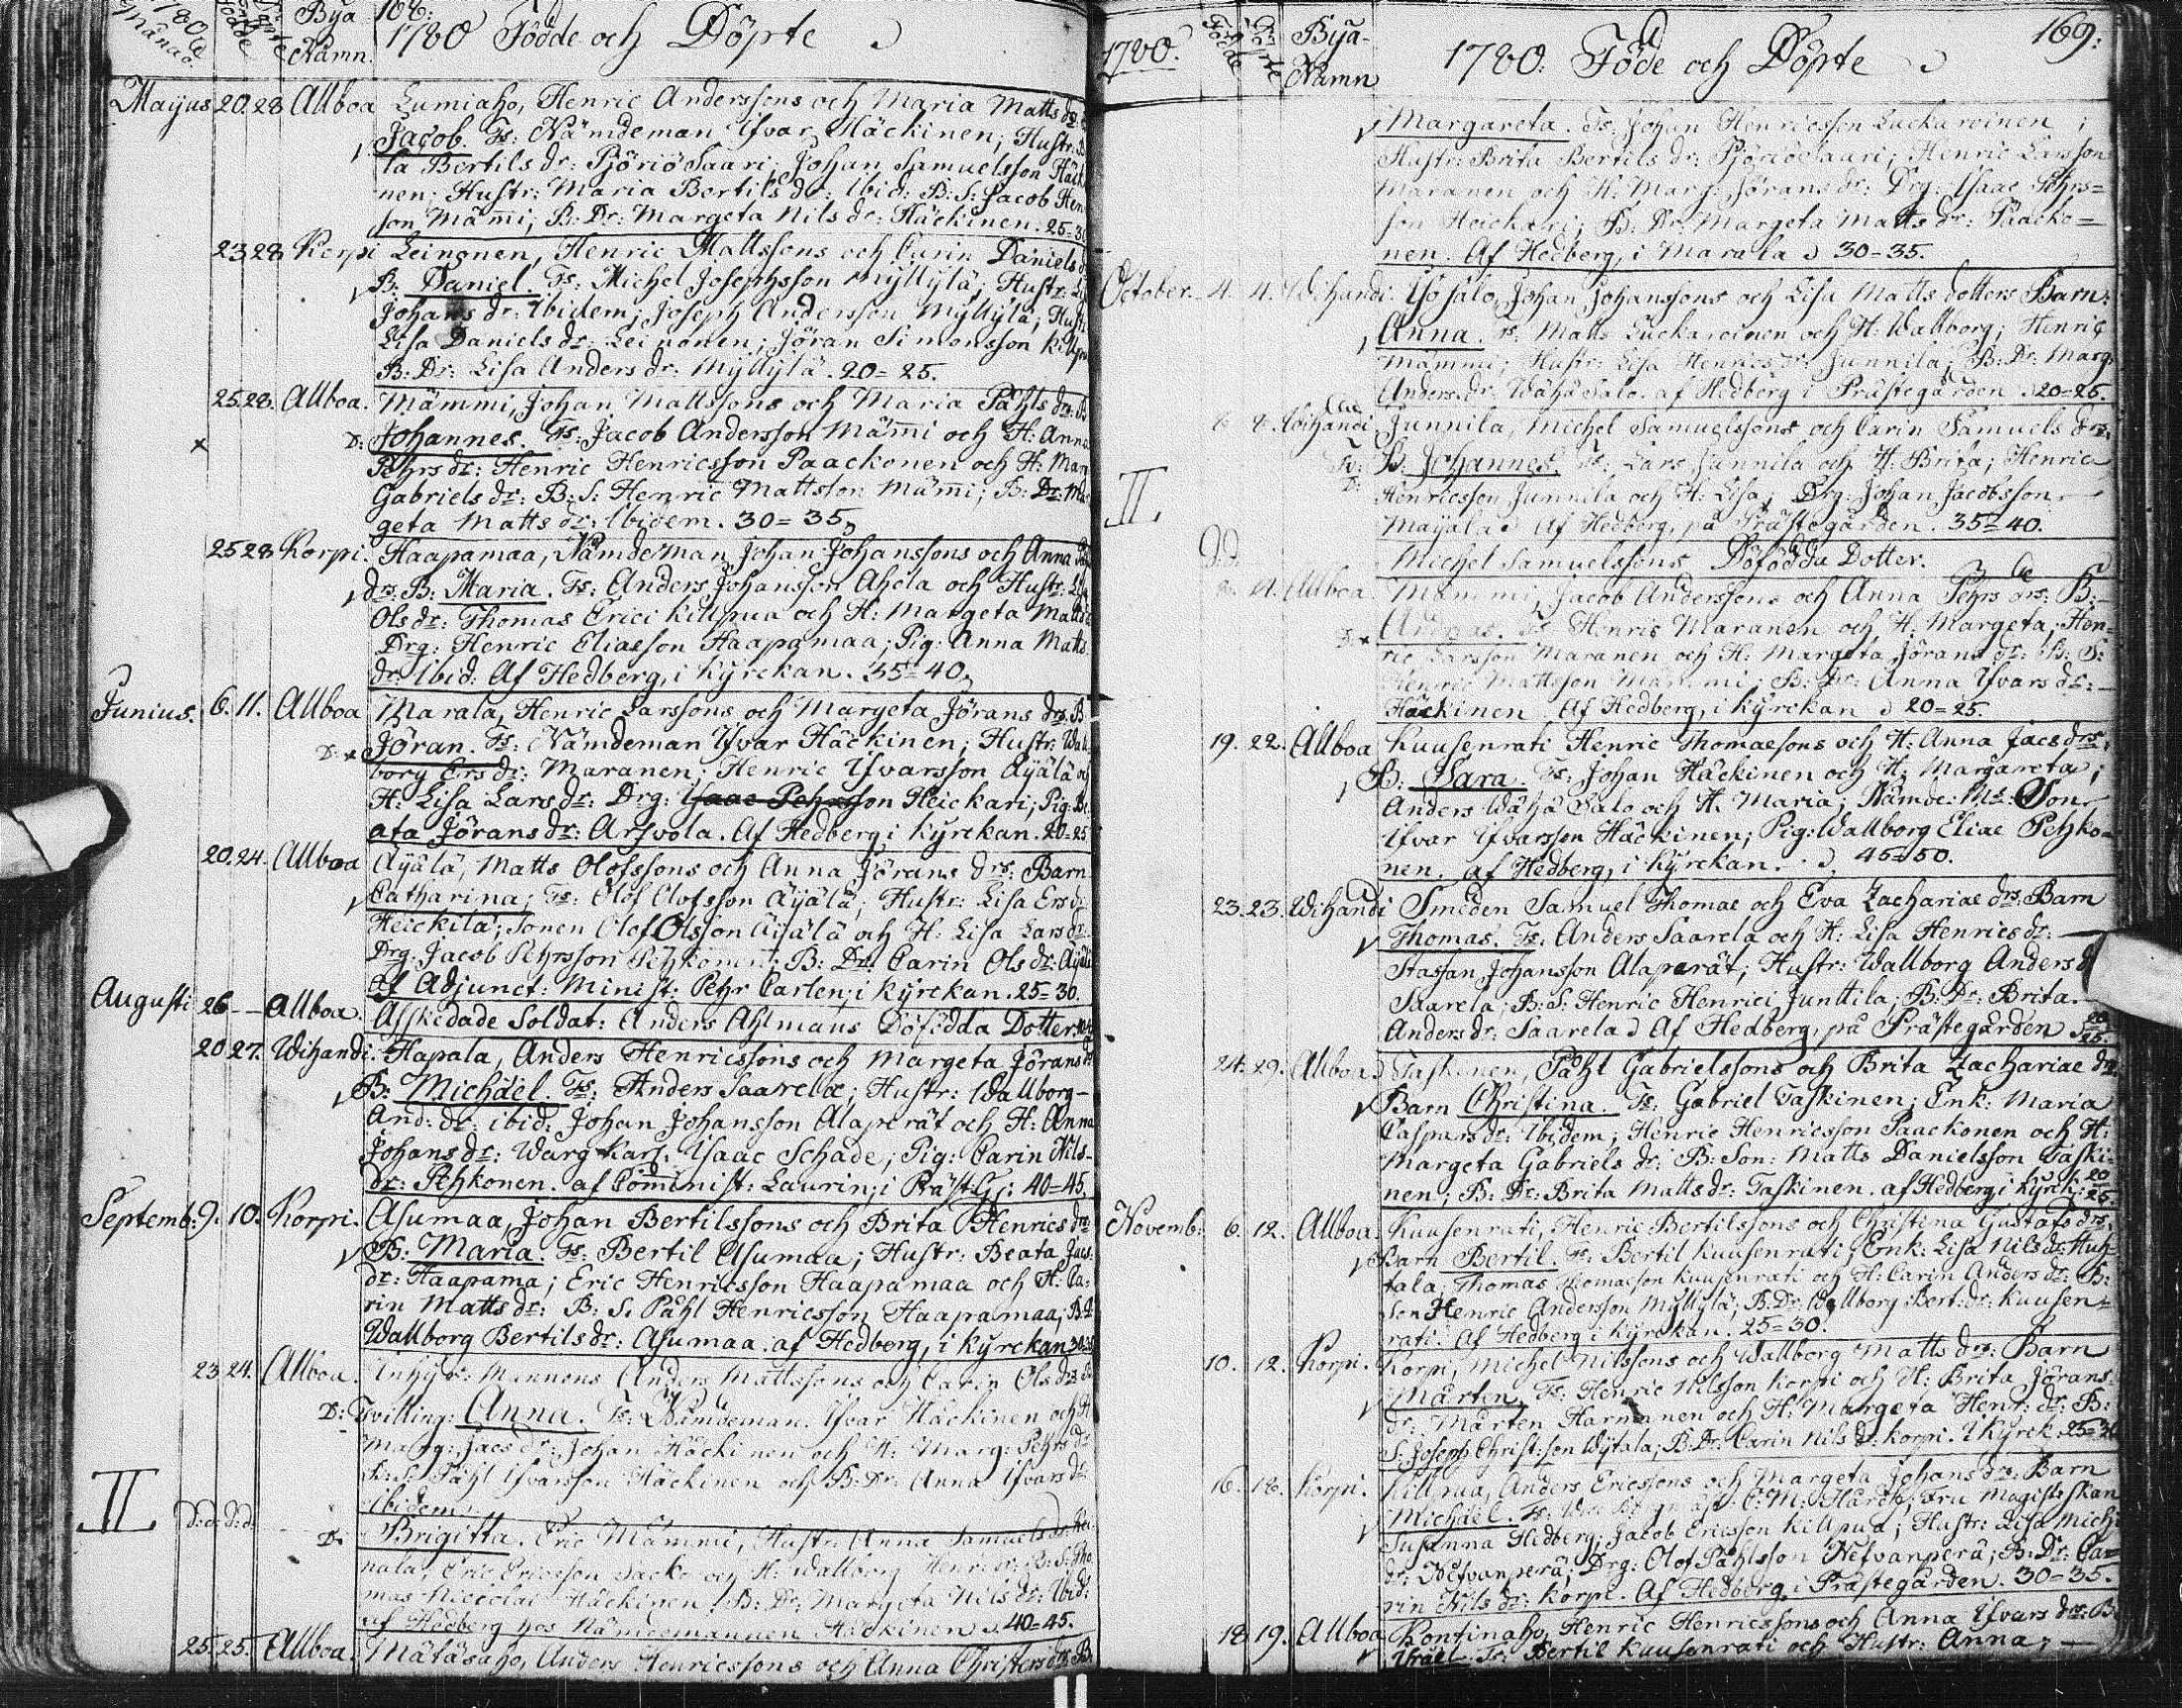 1780 Månad. Födde Döpte Bya Namn. 168:
1780 Födde och Döpte
Majus 20. 28 Allboa Lumiaho, Henric Anderssons och Maria Matts dr:
Jacob. Fs: Nämdeman Ifvar Häckinen; Hustr:
ta Bertils dr: Pjöriö Saari; Johan Samuelsson Häck
nen; Hustr: Maria Bertils dr: Ibid: B: S: Jacob Hen
son Mämi; B: Dr: Margeta Nils dr: Häckinen. 25=30
23 28 Korpi Leinonen, Henric Mattssons och Carin Daniels
B: Daniel. Fs: Michel Josephsson Myllylä; Hustr:
Johans dr: Ibidem; Joseph Andersson Myllylä; Hust
Lisa Daniels dr: Leinonen; Jöran Simonsson Killpu
B: Dr: Lisa Anders dr: Myllylä. 20=25.
25 28. Allboa. Mämmi, Johan Mattssons och Maria Påhls dr: B
D: Johannes. Fs: Jacob Andersson Mämi och H: Anna
Pehrs dr; Henric Henricsson Paackonen och H: Mar
Gabriels dr: B: S: Henric Mattsson Mämi; B: Dr: Mar
geta Matts dr: Ibidem. 30=35.
25 28 Korpi. Haapamaa, Nämdeman Johan Johanssons och Anna
drs: B: Maria. Fs: Anders Johansson Ahola och Hustr:
Ols dr: Thomas Erici Killpua och H: Margeta Matts d
Drg: Henric Eliasson Haapamaa; Pig: Anna Matts
dr: Ibid: Af Hedberg, i Kyrckan. 35=40.
Junius. 6. 11. Allboa Marala, Henric Larssons och Margeta Jörans drs: B
D: Jöran. Fs: Nämdeman Ifvar Häckinen; Hustr: Wall
borg Ers dr: Maranen; Henric Ifvarsson Äyälä och
H: Lisa Lars dr: Drg: Isaac Pehrsson Heickari; Pig: Be
ata Jörans dr: Arfvola. Af Hedberg i Kyrckan. 20=25
20. 24. Allboa Äyälä, Matts Olofssons och Anna Jörans drs: Barn
Catharina; Fs: Olof Olofsson Äyälä; Hustr: Lisa Ers dr
Heickilä; Sonen Olof Olsson Äyälä och H: Lisa Lars dr:
Drg: Jacob Pehrsson Pehkonen; B: Dr: Carin Ols dr: Äyälä
af Adjunct: Minist: Pehr Carlen; i Kyrckan. 25=30.
Augusti 26 -- Allboa. Afskedade Soldat: Anders Ahlmans Döfödda Dotter.
20 27. Wihandi. Hapala, Anders Henricssons och Margeta Jörans
B: Michäel. Fs: Anders Saarela; Hustr: Wallborg-
And: dr: ibid: Johan Johansson Alaperät och H: Anna
Johans dr: Warg Karf. Isaac Schade; Pig: Carin Nils-
dr: Pehkonen. af Cominist: Laurin; i Präst:Gg: 40=45.
Septemb: 9. 10. Korpi. Asumaa, Johan Bertilssons och Brita Henrics dr:
B: Maria. Fs: Bertil Asumaa; Hustr: Beata Jacs:
dr: Haapama; Eric Henricsson Haapamaa och H: Ca:
rin Matts dr: B: S: Påhl Henricsson Haapamaa; B: D:
Wallborg Bertils dr: Asumaa. af Hedberg, i Kyrckan
23 24. Allboa. Inhys: Mennens Anders Mattssons och Carin Ols drs
D: Tvilling: Anna. Fs: Nämdeman. Ifvar Häckinen och H
Marg: Jacs dr: Johan Häckinen och H: Marg: Pehrs dr
B: S: Påhl Ifvarsson Häckinen och B: Dr: Anna Ifvars dr
ibidem.
II D:d: d:d.
D: Brigitta. Eric Mämmi, Hustr: Anna Samuels dr
nala; Eric Ericsson Sacko och H: Wallborg Henr: dr: B: S: Tho
mas Nicolai Häckinen; B: Dr: Margeta Nils dr: Ibid:
af Hedberg hos Nämdemannen Häckinen 40=45.
25. 25. Allboa. Mätäsaho, Anders Henricssons och Anna Christers drs: B:
1780. Födde Döpte Bya- Namn 169:
1780: Föde och Döpte
Margareta. Fs: Johan Henricsson Luckaroinen;
Hustr: Brita Bertils dr: Pjöriö Saari; Henric Larsson
Maranen och H: Marg: Jörans dr: Drg: Isaac Pehrs=
son Heickari; B: Dr: Margeta Matts dr: Paacko=
nen. Af Hedberg, i Marala 30=35.
October. 4. 4. Wihandi. Iso Salo, Johan Johanssons och Lisa Matts dotters Barn:
Anna. Fs: Matts Luckaroinen och H: Wallborg; Henric
Mämmi; Hustr: Lisa Henrics dr: Junnila; B: Dr: Marg:
Anders dr: Wähä Salo. af Hedberg i Prästegården. 20=25.
8. 8. Wihandi. Junnila, Michel Samuelssons och Carin Samuels drs.
Tv: D: B: Johannes. Fs: Lars Junnila och H: Brita; Henric
Henricsson Junnila och H: Lisa; Drg: Johan Jacobsson
Mayala Af Hedberg, på Prästegården. 35=40.
II D:d: Michel Samuelssons Döfödda Dotter.
Allboa. Mämmi, Jacob Anderssons och Anna Pehrs drs: B:
D: Fs Henric Maranen och H: Margeta; Hen-
ric Larsson Maranen och H: Margeta Jörans dr: B: S:
Henric Mattsson Mämmi; B: Dr: Anna Ifvars dr:
Häckinen. Af Hedberg, i Kyrckan 20=25.
19. 22. Allboa Kuusenrati Henric Thomaesons och H: Anna Jacs drs.
B: Sara. Fs: Johan Häckinen och H: Margareta;
Anders Wähä Salo och H. Maria; Nämde: Ms: Son,
Ifvar Ifvarsson Häckinen; Pig: Wallborg Eliae Pehko-
nen. af Hedberg, i Kyrckan. 45=50.
23. 23. Wihandi Smeden Samuel Thomae och Eva Zachariae drs: Barn
Thomas. Fs: Anders Saarela och H: Lisa Henrics dr:
Staffan Johansson Alaperät; Hustr: Wallborg Anders d
Saarela; B: S: Henric Henrici Junttila; B: Dr: Brita.
Anders dr: Saarela Af Hedberg, på Prästegården 20=25.
24. 29. Allboa Taskinen, Påhl Gabrielssons och Brita Zachariae dr
Barn Christina. Fs: Gabriel Taskinen; Enk: Maria
Caspars dr: Ibidem; Henric Henricsson Paackonen och H:
Margeta Gabriels dr: B: Son: Matts Danielsson Taski-
nen; B: Dr: Brita Matts dr: Taskinen. af Hedberg i Kyrck: 20=25.
Novemb: 6. 12. Allboa. Kuusenrati, Henric Bertilssons och Christina Gustafs drs.
Barn Bertil. Fs: Bertil Kuusenrati; Enk: Lisa Nils dr: Huh-
tala; Thomas Thomaeson Kuusenrati och H: Carin Anders dr: B:
Son Henric Andersson Myllylä; B: Dr: Wallborg Bert: dr: Kuusen-
rati. Af Hedberg i Kyrckan. 25=30.
10. 12. Korpi. Korpi, Michel Nilssons och Wallborg Matts drs: Barn
Mårten. Fs: Henric Nilsson Korpi och H: Brita Jörans-
dr: Mårten Harmanen och H: Margeta Henr: dr: B:
S: Joseph Christ:son Wytala; B: Dr: Carin Nils dr: Korpi. i Kyrck. 25=30
16. 18. Korpi. Killpua, Anders Ericssons och Margeta Johans drs: Barn
Michäel. Fs: C: M: Hårdh; Fru Magisterskan
Susanna Hedberg; Jacob Ericsson Killpua; Hustr: Lisa Mich:
dr: Nefvanperä; Drg: Olof Påhlsson Nefvanperä; B: Dr: Ca-
rin Nils dr: Korpi. Af Hedberg, i Prästegården. 30=35.
18 19. Allboa Kontinaho, Henric Henricssons och Anna Ifvars drs: B
Israel. Fs: Bertil Kuusenrati och Hustr: Anna;